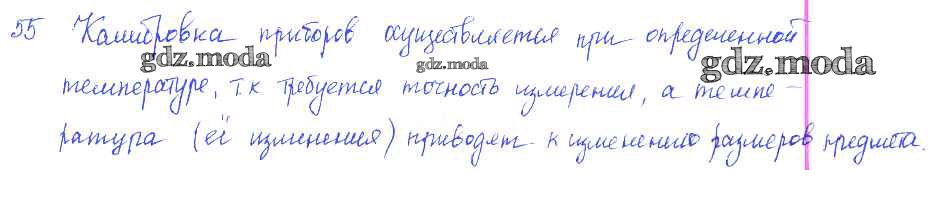 55 Калибровка приборов осуществляется при определенной
gdz.moda gdz.moda gdz.moda
температуре, т.к требуется точность измерения, а темпе-
ратура (её изменения) приводят к изменению размеров предмета.